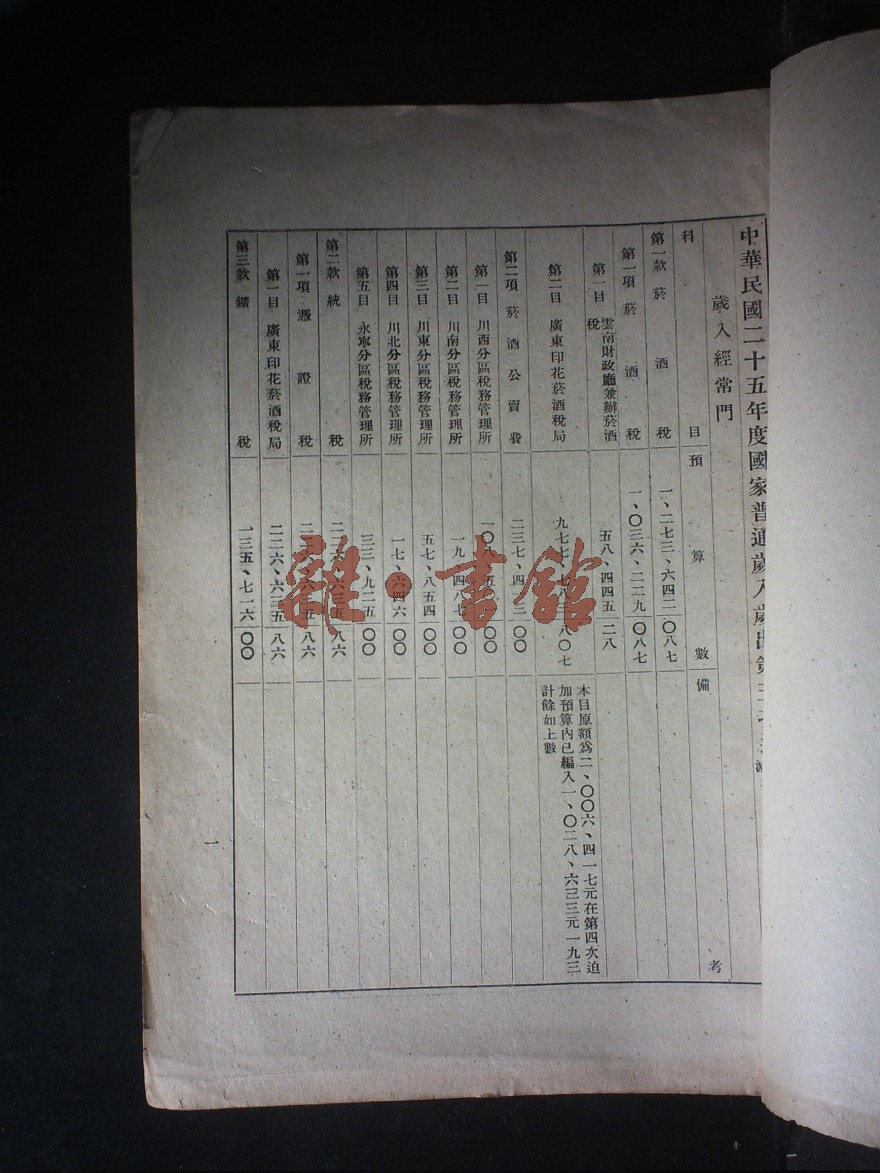 中華民國二十五年度國家普通歲入歲出第
歲入經常門
科 目 預 算 數 備 考
第一款 菸酒稅 一、二七三、六四二 〇八七
第一項 菸酒稅 一、〇三六、二二九 〇八七
第一目 雲南財政廳兼辦菸酒稅 五八、四四五 二八
第二目 廣東印花菸酒稅局 九七七、七八三 八〇七 本目原額為二、〇〇六、四一七元在第四次迫
加預算內已編入一、〇二八、六三三元一九三
計餘如上數
第二項 菸酒公賣費 二三七、四 三 〇〇
第一目 川西分區稅務管理所 〇〇
第二目 川南分區稅務管理所 一九、四八七 〇〇
第三目 川東分區稅務管理所 五七、八五四 〇〇
第四目 川北分區稅務管理所 一七、六四六 〇〇
第五目 永寧分區稅務管理所 三三、九二五 〇〇
第二款 統稅 二二六、六三五 八六
第一項 憑證稅 二二六、六三五 八六
第一目 廣東印花菸酒稅局 二二六、六三五 八六
第三款 鑛稅 一三五、七一六 〇〇
一
雜·書館